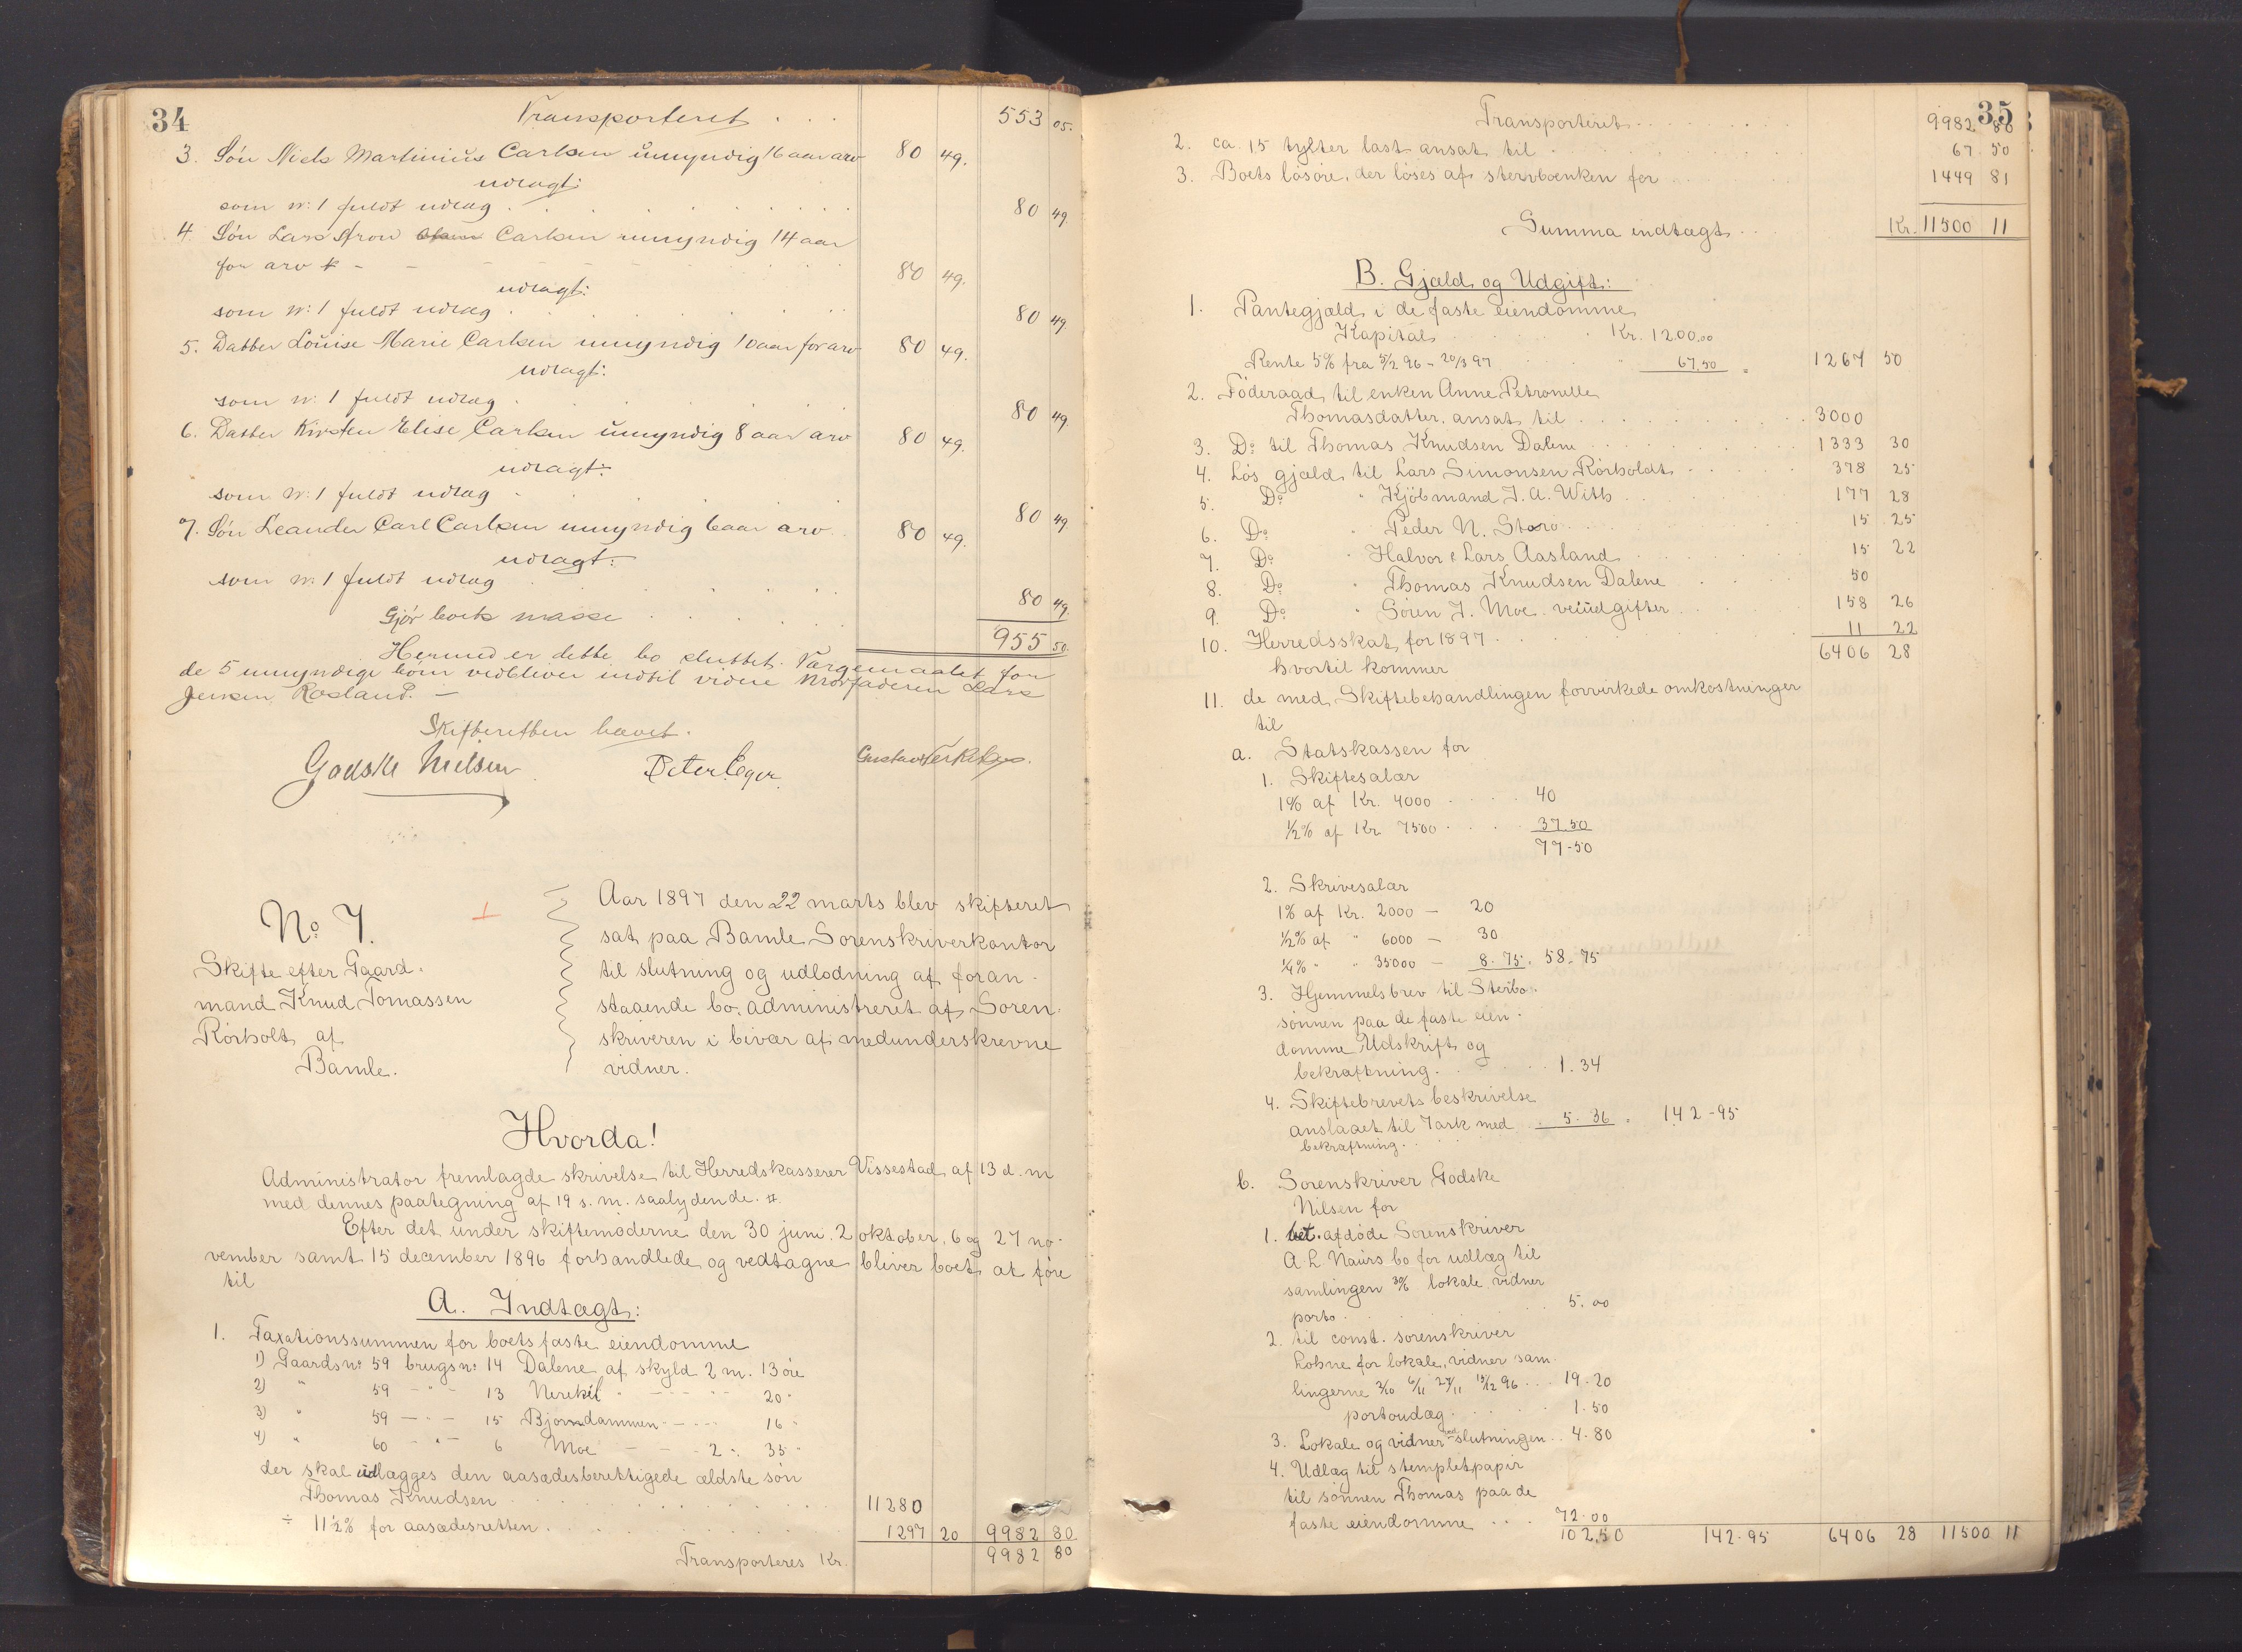 34
Transporteret . . . 553 05.
3. Søn Niels Martinius Carlsen umyndig 16 aar arv 80 49.
udlagt:
som № 1 fuldt udlæg . . . 80 49.
4. Søn Lars Aron Carlsen umyndig 14 aar
for arv - - - 80 49.
udlagt:
som № 1 fuldt udlæg . . . 80 49.
5. Datter Louise Marie Carlsen umyndig 10 aar for arv 80 49.
udlagt:
som № 1 fuldt udlæg . . . 80 49.
6. Datter Kirsten Elise Carlsen umyndig 8 aar arv 80 49.
udlagt:
som № 1 fuldt udlæg . . . 80 49
7. Søn Leander Carl Carlsen umyndig 6 aar arv 80 49.
udlagt:
som № 1 fuldt udlæg . . . 80 49.
Gjør boets masse . . . 955 50.
Hermed er dette bo sluttet. Værgemaalet for
de 5 umyndige børn vedbliver indtil videre morfaderen Lars
Jensen Rosland. —
Skifteretten hævet.
Godske Nielsen Peter Eger. Gustav
№ 7.
Skifte efter Gaard-
mand Knud Tomassen
Rørholt af
Bamle.
Aar 1897 den 22 marts blev skifteret
sat paa Bamle Sorenskriverkontor
til slutning og udlodning af foran-
staaende bo, administreret af Soren-
skriveren i bivær af medunderskrevne
vidner.
Hvorda!
Administrator fremlagde skrivelse til Herredskasserer Vissestad af 13 d. m
med dennes paategning af 19 s. m. saalydende. #.
Efter det under skiftemøderne den 30 juni. 2 oktober, 6 og 27 no-
vember samt 15 december 1896 forhandlede og vedtagne bliver boet at føre
til
A. Indtægt:
1. Taxationssummen for boets faste eiendomme
1) Gaardsn: 59 brugsn: 14 Dalene af skyld 2 m. 13 øre
2) " 59 - " - 13 Nerekil " - - - 20 "
3) " 59 - " - 15 Bjorndammen " - - - 16 "
4) " 60 - " - 6 Moe - - - 2 ". 35 "
der skal udlægges den aasædesberettigede ældste søn
Thomas Knudsen . . . 11280
÷ 11½% for aasædesretten . . . 1297 20 9982 80.
Transporteres Kr. 9982 80
35
Transporteret . . . 9982 80
2. ca. 15 tylter last ansat til . . . 67 50
3. Boets løsøre, der løses af stervboenken for . . . 1449 81
Summa indtægt . . . Kr. 11500 11
B. Gjæld og Udgift:
1. Pantegjæld i de faste eiendomme
Kapital . . . Kr. 1200.00
Rente 5% fra 5/2 96 - 20/3 97 . . . " 67.50 = 1267 50
2. Føderaad til enken Anne Petronelle
Thomasdatter, ansat til . . . 3000
3. Do til Thomas Knudsen Dalene . . . 1333 30
4. Løs gjæld til Lars Simonsen Rørholdt . . . 378 25
5. Do " Kjøbmand J. A. With . . . 177 28
6. Do " Peder N. Storø . . . 15 25
7. Do " Halvor & Lars Aasland . . . 15 22
8. Do " Thomas Knudsen Dalene . . . 50
9. Do " Søren J. Moe veiudgifter . . . 158 26
10. Herredsskat for 1897 . . . 11 22
hvortil kommer 6406 28
11. de med Skiftebehandlingen forvirkede omkostninger
til
a. Statskassen for
1. Skiftesalær
1% af Kr. 4000 . . . 40
½% af Kr. 7500 . . . 37.50
77-50
2. Skrivesalær
1% af Kr. 2000 — 20
½% af " 6000 — 30
¼% " " 35000 — 8.75. 58.75
3. Hjemmelsbrev til Sterbo-
sønnen paa de faste eien-
domme Udskrift og
bekræftning . . . 1.34
4. Skiftebrevets beskrivelse
anslaaet til 7 ark med . 5.36 = 142-95
bekræftning . .
b. Sorenskriver Godske
Nilsen for
1. bet. afdøde Sorenskriver
A. L. Naürs bo for udlæg til
samlingen 30/6 lokale, vidner
porto . . . 5.00
2. til const. sorenskriver
Lohne for lokale, vidner sam-
lingerne 2/10 6/11 27/11 15/12 96 . . . 19.20
portoudlæg . . . 1.50
3. Lokale og vidner ved slutningen . . 4.80
4. Udlæg til stemplet papir
til sønnen Thomas paa de
faste eiendomme . . . 72.00
102.50 142.95 6406 28 11500 11